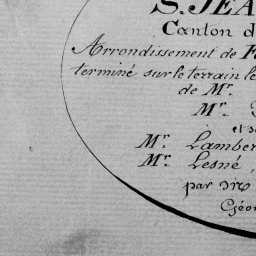 S. JEA
Canton d
Arrondissement de F
terminé sur le terrain le
de Mr.
Mr.
et s
Mr. Lamber
Mr. Lesné,
par
Géo